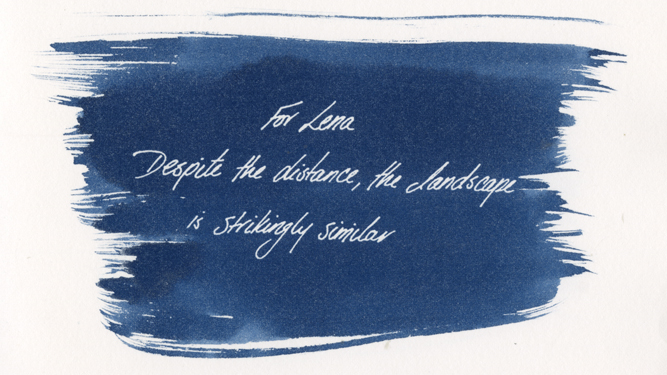 For Lena
Despite the distance, the landscape
is strikingly similar